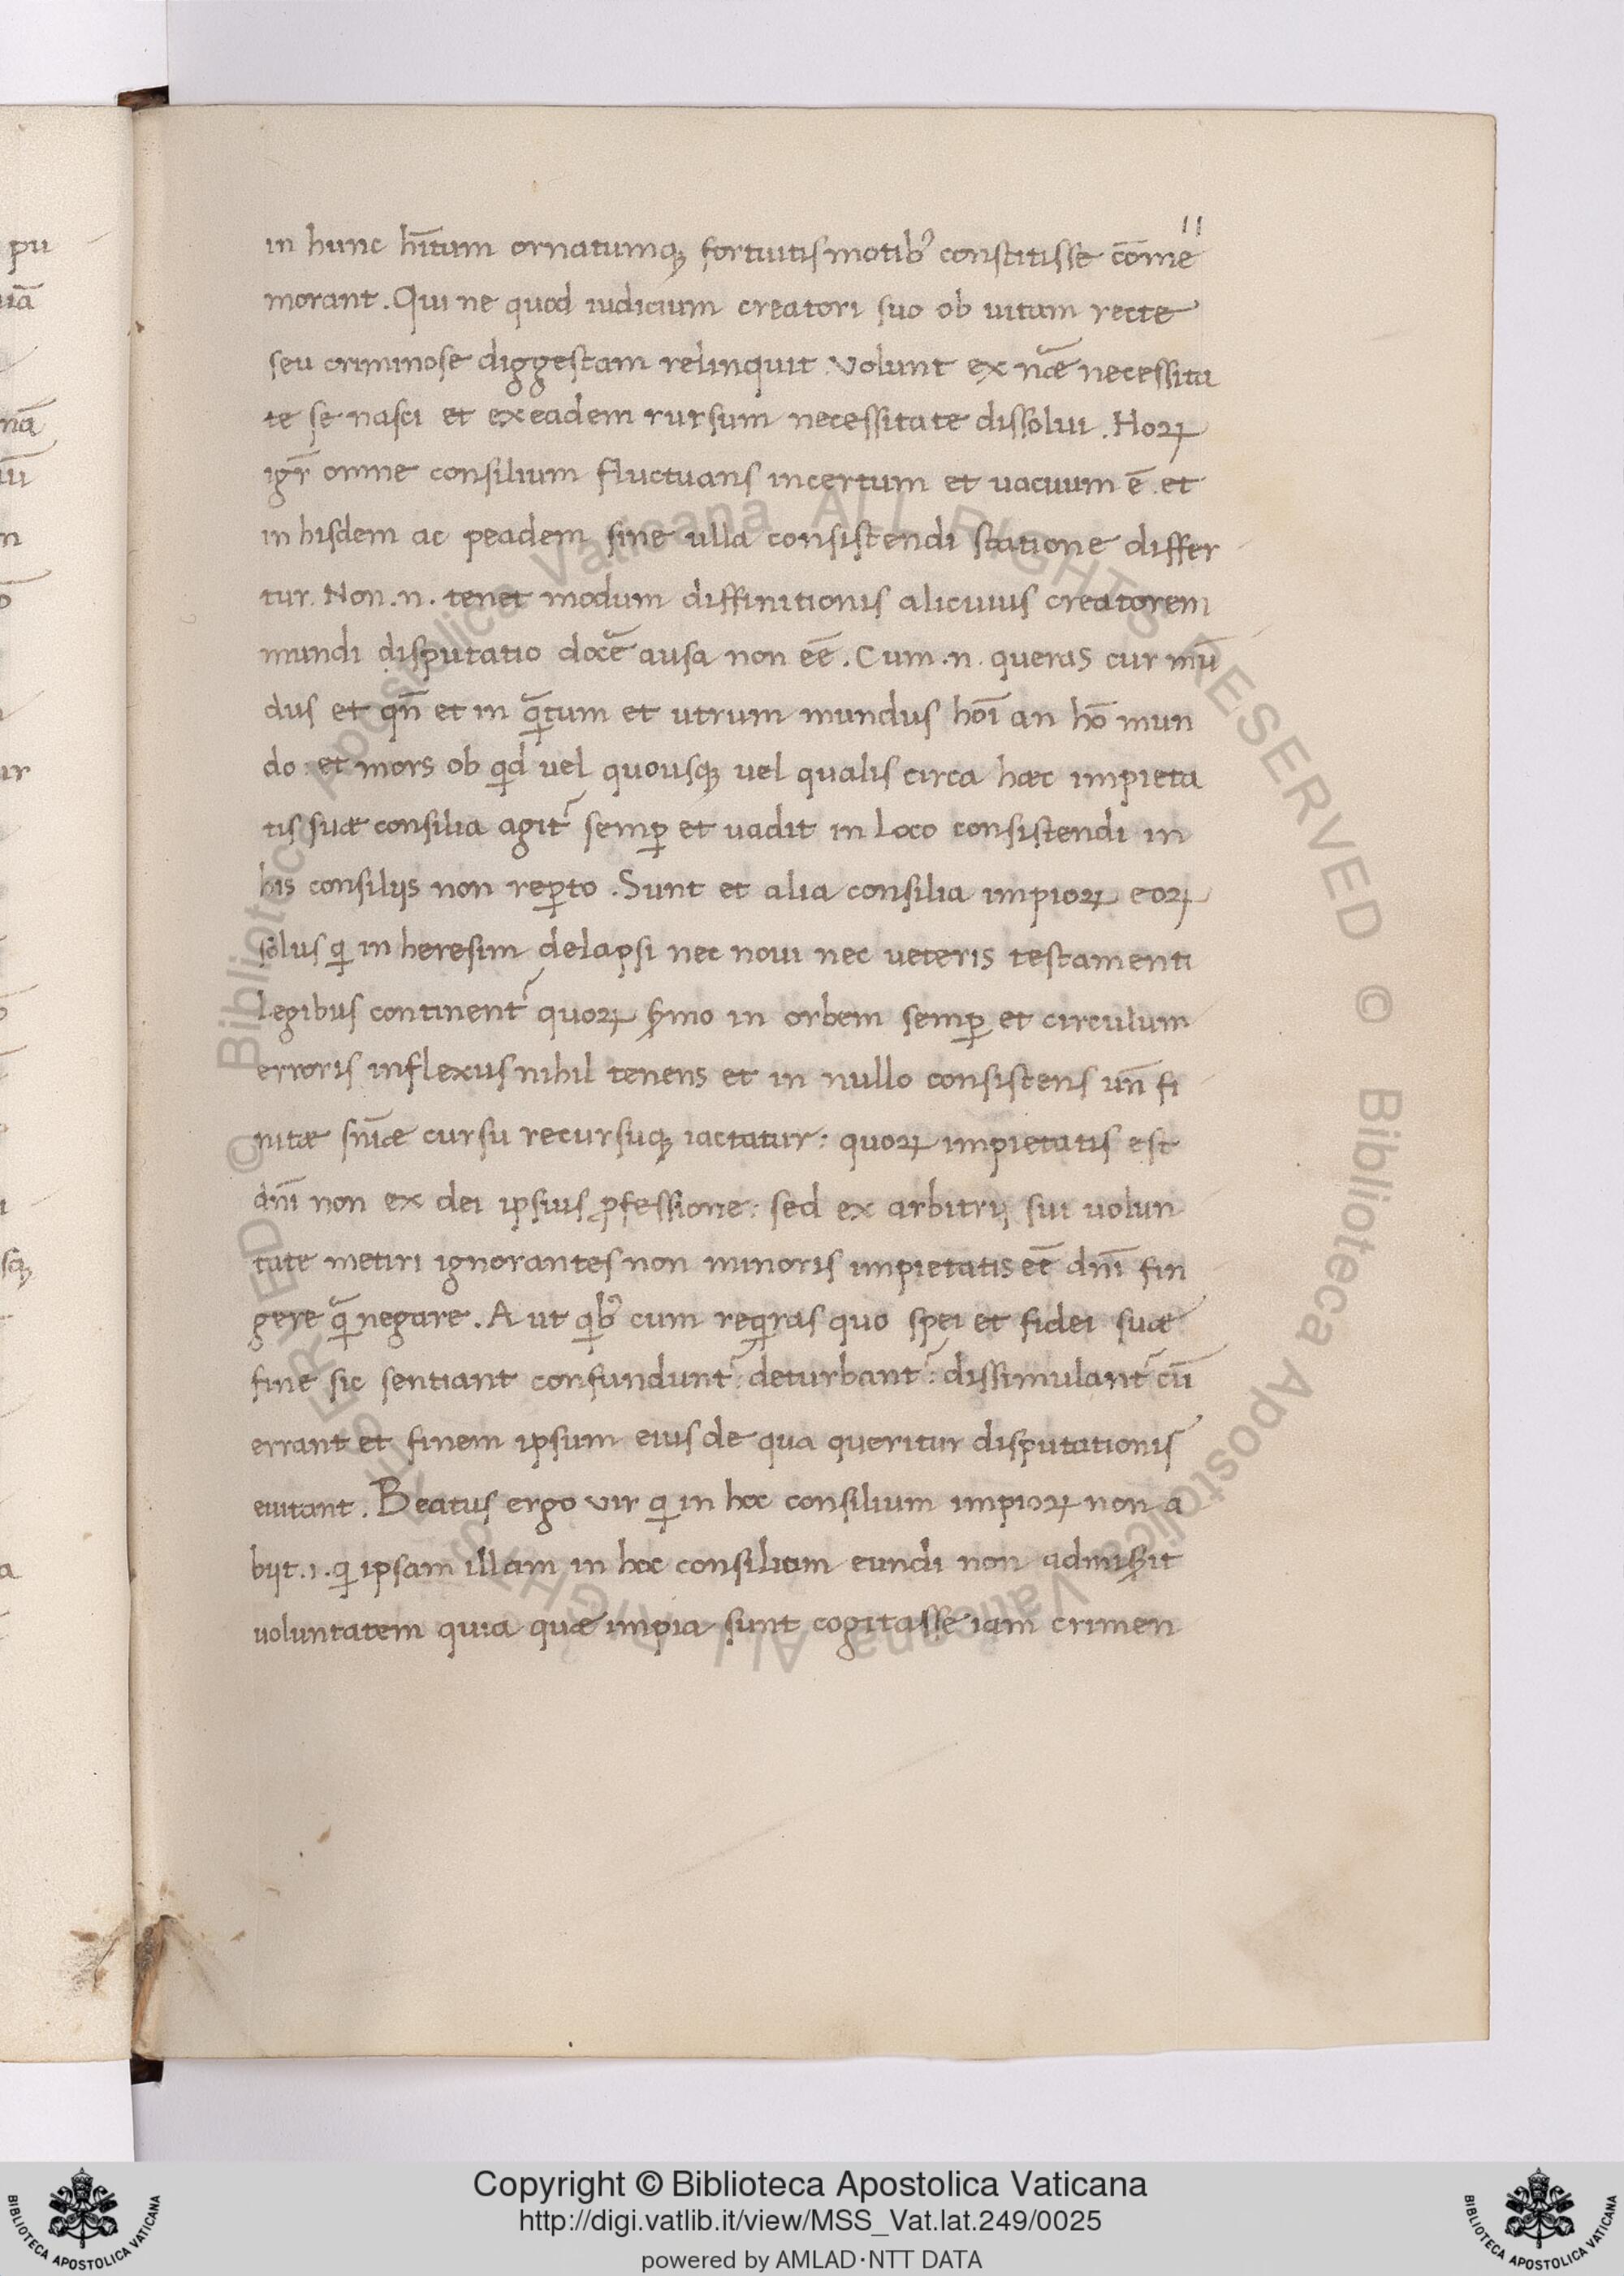 11
in hunc hītum ornatumqꝫ fortuitis motibꝰ constitisse cōme
morant. Qui ne quod iudicium creatori suo ob uitam recte
seu criminose diggestam relinquit. Volunt ex nāe necessita
te se nasci et ex eadem rursum necessitate dissolui. Hoꝝ
igr̄ omne consilium fluctuans incertum et uacuum ē. et
in hisdem ac peadem sine ulla consistendi statione differ
tur. Non .n. tenet modum diffinitionis alicuius creatorem
mundi disputatio docē ausa non eē. Cum .n. queras cur mū
dus et qn̄ et in qᷓtum et utrum mundus hōi an hō mun
do: et mors ob qd uel quousqꝫ uel qualis circa hæc impieta
tis suæ consilia agit᷑ semꝑ et uadit in loco consistendi in
his consilijs non reꝑto. Sunt et alia consilia impioꝝ eoꝝ
solus qi in heresim delapsi nec noui nec ueteris testamenti
legibus continent᷑ quoꝝ ẜmo in orbem semꝑ et circulum
erroris inflexus nihil tenens et in nullo consistens un̄ fi
nitæ sn̄iæ cursu recursuqꝫ iactatur: quoꝝ impietatis est
dn̄i non ex dei ipsius ꝓfessione: sed ex arbitrij sui uolun
tate metiri ignorantes non minoris impietatis eē dn̄i fin
gere qᷓ negare. A ut qibꝰ cum reqiras quo spei et fidei suæ
fine sic sentiant confundunt᷑: deturbant᷑: dissimulant᷑ cū
errant et finem ipsum eius de qua queritur disputationis
euitant. Beatus ergo vir qi in hoc consilium impioꝝ non a
bijt .i. qi ipsam illam in hoc consilium eundi non admiẜit
uoluntatem quia quæ impia sunt cogitasse iam crimen
© Biblioteca Apostolica Vaticana ALL RIGHTS RESERVED © Biblioteca Apostolica Vaticana ALL RIGHTS RESERVED
Copyright © Biblioteca Apostolica Vaticana
http://digi.vatlib.it/view/MSS_Vat.lat.249/0025
powered by AMLAD·NTT DATA
BIBLIOTECA APOSTOLICA VATICANA
BIBLIOTECA APOSTOLICA VATICANA